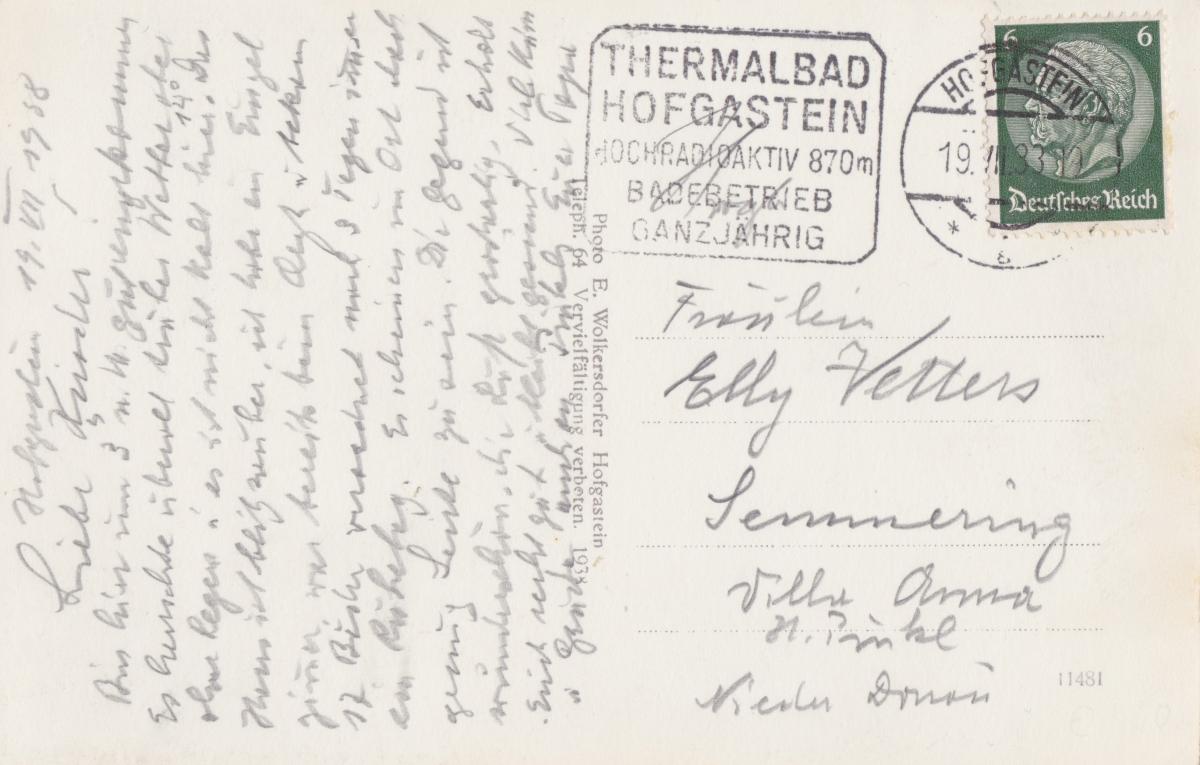 Hofgastein 19. VII 1938
Liebe Kinder!
Bin hier um 3 n. M. gut angekommen
Es herrscht überall trübes Wetter
ohne Regen u es ist nicht kalt hier. 14° Das
Haus ist blitzsauber, ich habe ein Einzel
zimmer, war bereits beim Arzt u
12 Bäder verordnet und 3 Tagen immer
ein Ruhetag. Es scheinen im Ort
genug Leute zu sein. Die Gegend ist
wunderschön, die Luft großartig. Erholt
Euch recht gut Viel
u Grüße Euer Papa
Photo E. Wolkersdorfer Hofgastein
Teleph. 64 Vervielfältigung verboten. 1938
THERMALBAD
HOFGASTEIN
HOCHRADIOAKTIV 870m
BADEBETRIEB
GANZJÄHRIG
HOFGASTEIN
19.VII.38
6 6
Deutsches Reich
Fräulein
Elly Vetters
Semmering
Villa Anna
H. Pinkl
Nieder Donau
11481